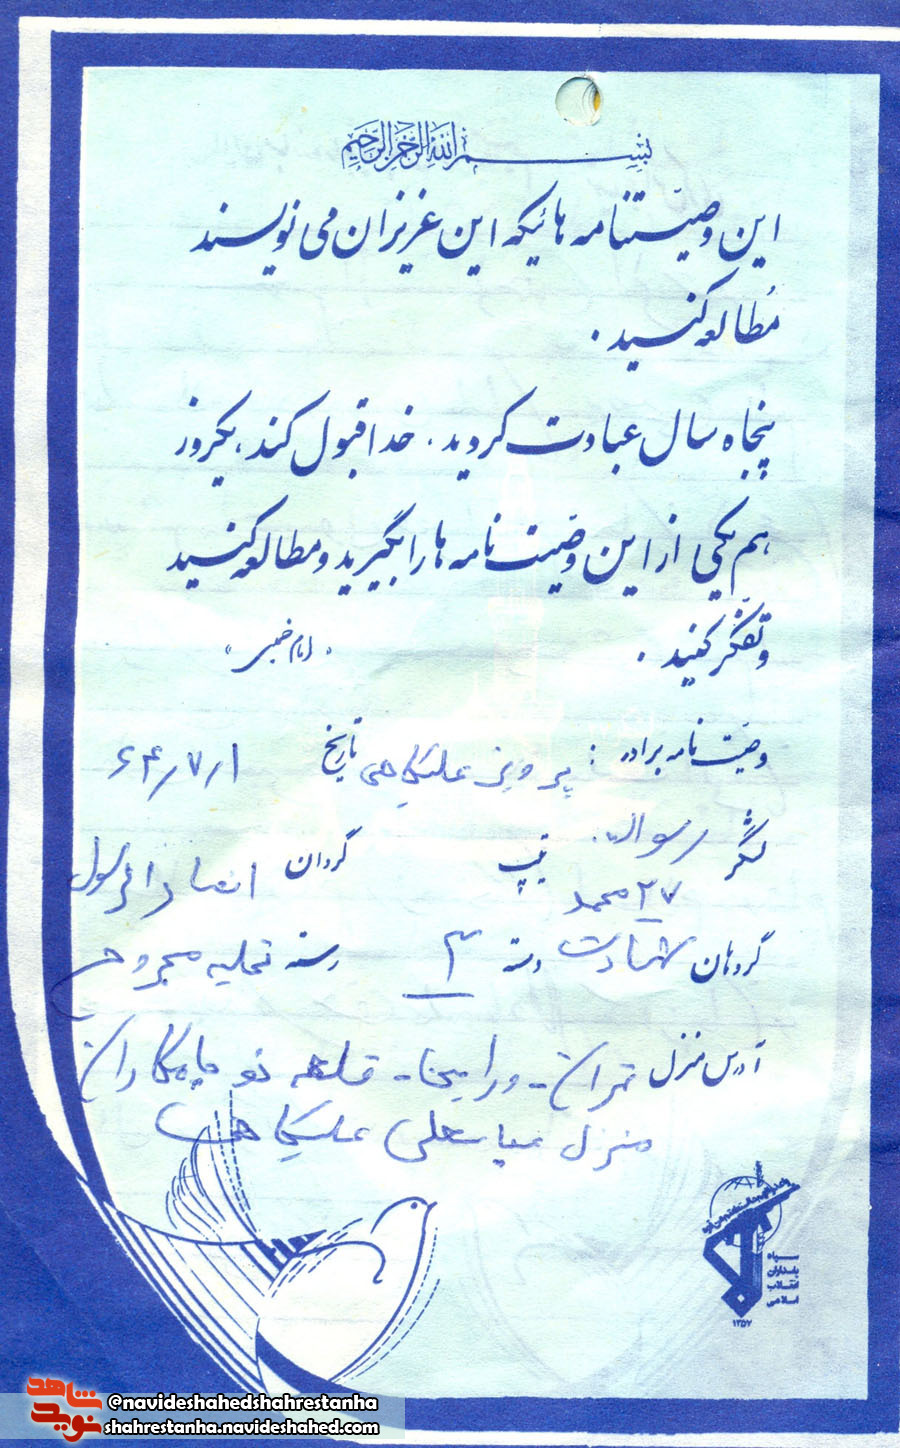 بسم الله الرحمن الرحیم
این وصیّتنامه هائیکه این عزیزان می نویسند
مُطالعه کنید .
پنجاه سال عبادت کردید . خدا قبول کند ، یکروز
هم یکی از این وصیّت نامه ها را بگیرید و مطالعه کنید
و تفکّر کنید .
« امام خمینی »
وصیّت نامه برادر : پرویز علیکاهی تاریخ ۶۴/۷/۱
لشگر ۲۷ محمد رسوال... تیپ گردان انصار الرسول
گروهان شهادت دسته ۳ رسته تخلیه مجروح
آدرس منزل تهران - ورامین - قلعه نو چاهکاران
منزل عباسعلی علیکاهی
سپاه
پاسداران
انقلاب
اسلامی
۱۳۵۷
نوید شاهد
@navideshahedshahrestanha
shahrestanha.navideshahed.com